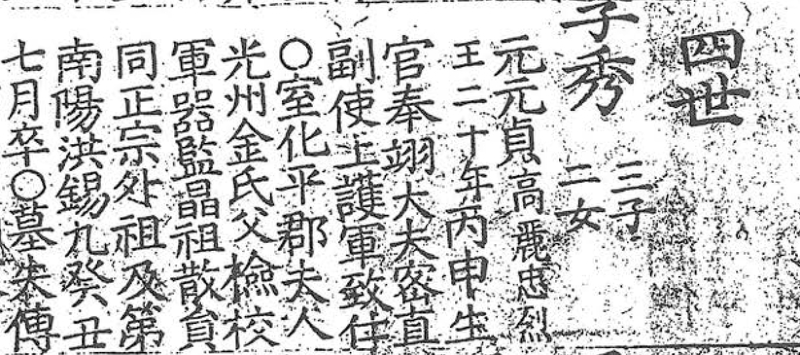 四世
子秀
三子
二女
元元貞高麗忠烈
王二十年丙申生
官奉翊大夫密直
副使上護軍致仕
○室化平郡夫人
光州金氏父檢校
軍器監晶祖散員
同正宗外祖及第
南陽洪錫九癸丑
七月卒○墓失傳